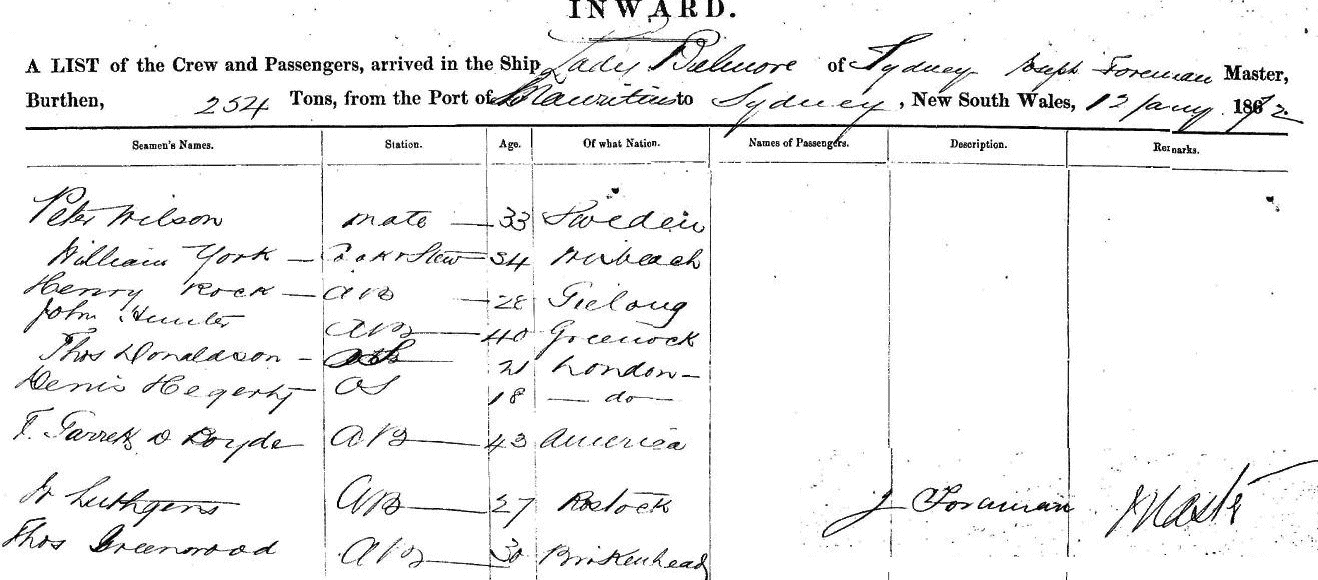 INWARD.
A LIST of the Crew and Passengers, arrived in the Ship Lady Belmore of Sydney Joseph Foreman Master,
Burthen, 254 Tons, from the Port of Mauritius to Sydney, New South Wales, 12 Jany. 1872
Seamen's Names. Station. Age. Of what Nation. Names of Passengers. Description. Remarks.
Peter Wilson mate 33 Sweden
William York — Cook & Stew 34 Wisbeach
Henry Rock — AB — 28 Gielong
John Hunter AB 40 Greenock
Thos Donaldson — 21 London —
Denis Hegerty OS 18 — do —
F. Garrett D Boyde AB 43 America
Luthgens AB 27 Rostock J Foreman Master
Thos Greenwood AB 30 Birkenhead